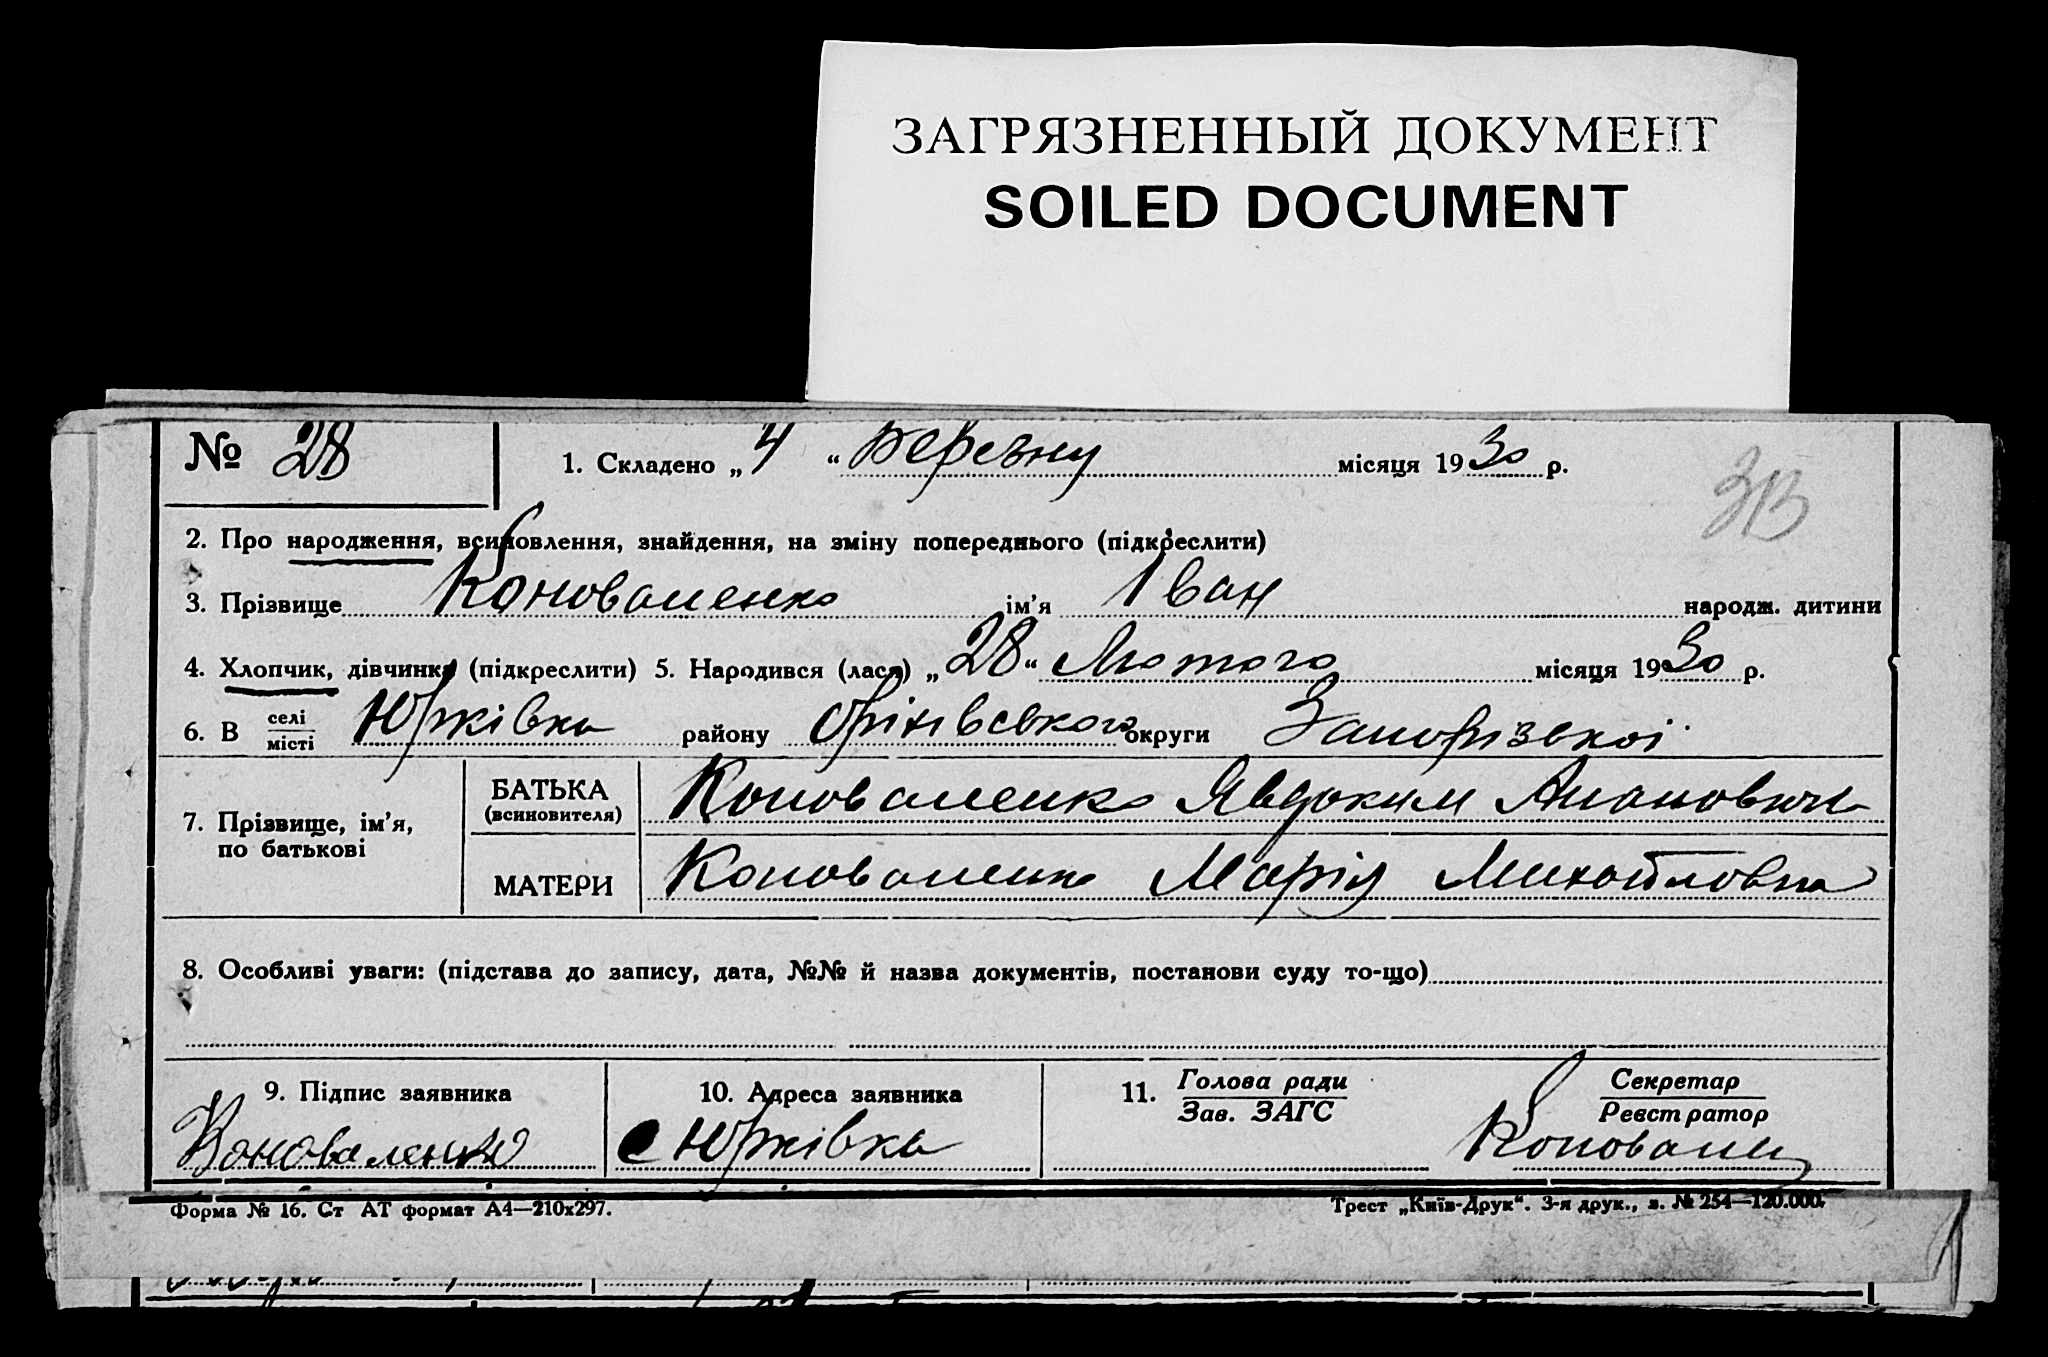 ЗАГРЯЗНЕННЫЙ ДОКУМЕНТ
SOILED DOCUMENT
№ 28
1. Складено „ 4 “ Березну місяця 1930 р.
ЗВ
2. Про народження, всиновлення, знайдення, на зміну попереднього (підкреслити)
3. Прізвище Коноваленко ім’я Іван народж. дитини
4. Хлопчик, дівчинка (підкреслити) 5. Народився (лася) „ 28 “ Лютого місяця 1930 р.
6. В селі місті Юрківка району Орінівського округи Запорізької
7. Прізвище, ім’я, по батькові
БАТЬКА (всиновителя) Коноваленко Явдоким
МАТЕРИ Коноваленко Марія Михайловна
8. Особливі уваги: (підстава до запису, дата, №№ й назва документів, постанови суду то-що)
9. Підпис заявника 10. Адреса заявника 11. Голова ради Зав. ЗАГС Секретар Реєстратор
Коноваленко с Юрківка Коновален
Форма № 16. Ст АТ формат А4—210х297. Трест „Київ-Друк“. 3-я друк., з. № 254—120.000.